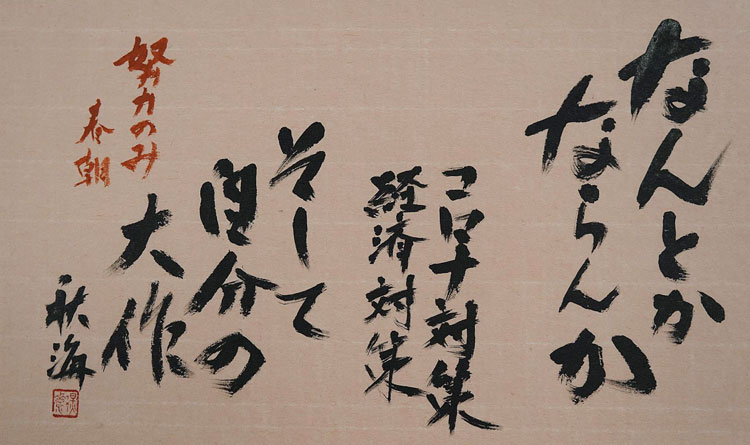 なんとか
ならんか
コロナ対策
経済対策
そして
自分の
大作
秋海
努力のみ
春朝